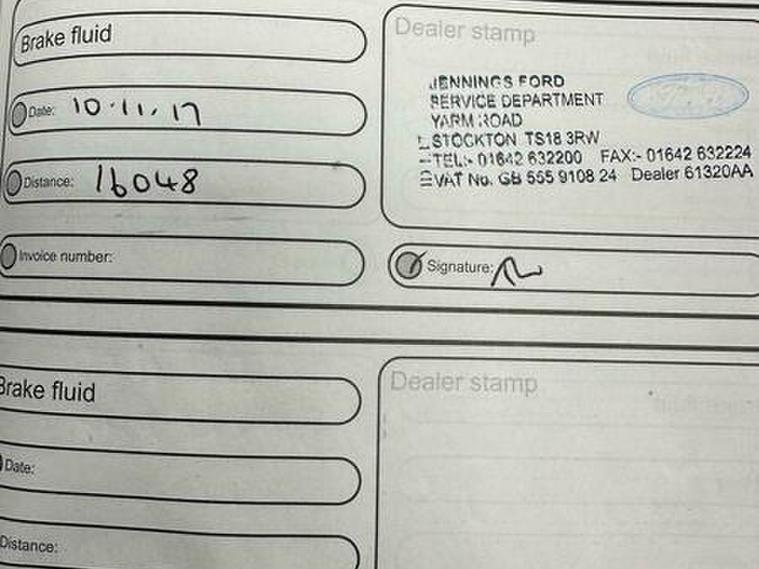 Brake fluid
Date: 10.11.17
Distance: 16048
Invoice number:
Dealer stamp
JENNINGS FORD
SERVICE DEPARTMENT
YARM ROAD
STOCKTON TS18 3RW
TEL:- 01642 632200 FAX:- 01642 632224
VAT No. GB 555 9108 24 Dealer 61320AA
Signature:
Brake fluid
Date:
Distance:
Dealer stamp